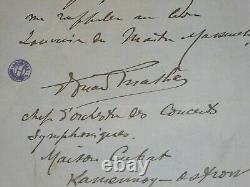 me rappeler au bon
souvenir de Maître Massenet
Chef d'orchestre des Concerts
Symphoniques.
Maison
Kamennoy-ostrow